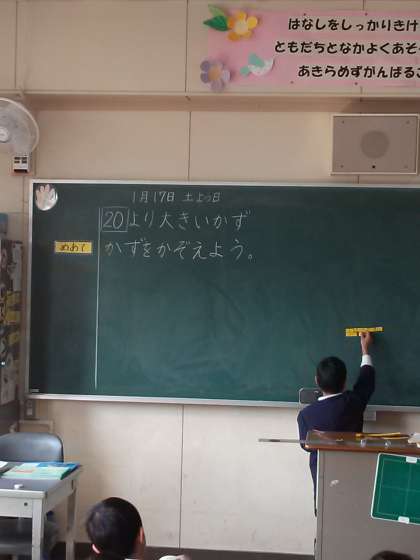 はなしをしっかりきけ
ともだちとなかよくあそ
あきらめずがんばるこ
1月17日 土よう日
20より大きいかず
めあて
かずをかぞえよう。